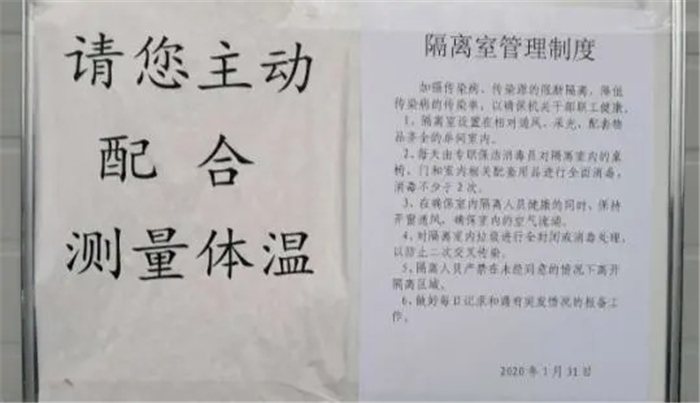 请您主动
配合
测量体温
隔离室管理制度
加强传染病、传染源的阻断隔离，降低
传染病的传染率，以确保机关干部职工健康。
1、隔离室设置在相对通风、采光、配套物
品齐全的房间室内。
2、每天由专职保洁消毒员对隔离室内的桌
椅、门和室内相关配套用品进行全面消毒，
消毒不少于2次。
3、在确保室内隔离人员健康的同时，保持
开窗通风，确保室内的空气流通。
4、对隔离室内垃圾进行全封闭或消毒处理，
以防止二次交叉传染。
5、隔离人员严禁在未经同意的情况下离开
隔离区域。
6、做好每日记录和遇有突发情况的报备工
作。
2020年1月31日